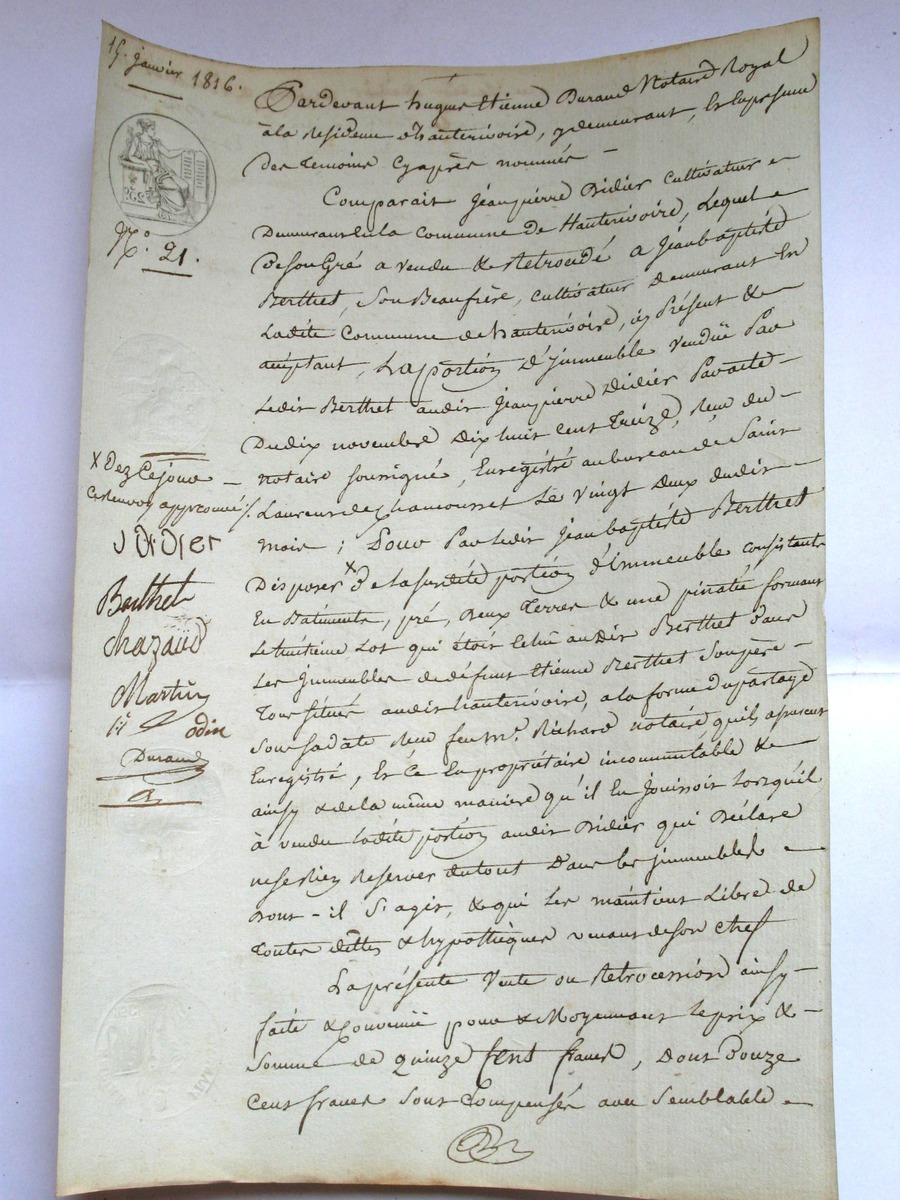 15. janvier 1816.
Pardevant hugues Etienne Durand Notaire Royal
à la Residence d'hauterivoire, y demeurant, En la presence
des Temoins Cyaprès nommés —
Comparait Jeanpierre Didier cultivateur
Demeurant En la Commune de Hauterivoire, Lequel
De Son Gré a vendu & Retrocédé a Jeanbaptiste
Berthet, Son Beaufrère, cultivateur demeurant En
Ladite Commune de hauterivoire, icy Présent &
acceptant, La portion D'jmmeuble Vendüe Par
Ledit Berthet audit Jeanpierre Didier Par acte
Du dix novembre Dix huit cent Treize, Reçu du
notaire soussigné, Enregistré au bureau de Saint
Laurent de Chamousset Le vingt Deux dudit
mois ; Pour Par Ledit Jeanbaptiste Berthet
Disposer x de La susdite portion d'Immeuble consistant
En Batiments, pré, deux Terres & une pinatée formant
Le huitième Lot qui étoit Echu au Dit Berthet Dans
Les Jmmeubles de défunt Etienne Berthet Son père
Tous Situés audit hauterivoire, a la forme du partage
Sous Sa date Reçu feu Me. Richard notaire qu'ils assurent
Enregistré, Et Ce En propriétaire incommutable &
ainsy & de la même maniere qu'il En Jouissoit Lorsqu'il
à vendu Ladite portion audit Didier qui Déclare
ne se Rien Reserver du tout Dans Les jmmeubles
Dont - il S'agit, & qui Les maintient Libre de
Toutes dettes & hypothèques venant de son chef
La présente Vente ou Retrocession ainsy
faite & Convenüe pour & Moyennant le prix &
Somme de quinze Cent francs, Dont Douze
Cent francs Sont Compensés avec Semblable
No. 21.
x Dez Ce jour
Ce Renvoy approuvé /.
J Didier
Berthet
Chazaud
Martin
odin
Durand